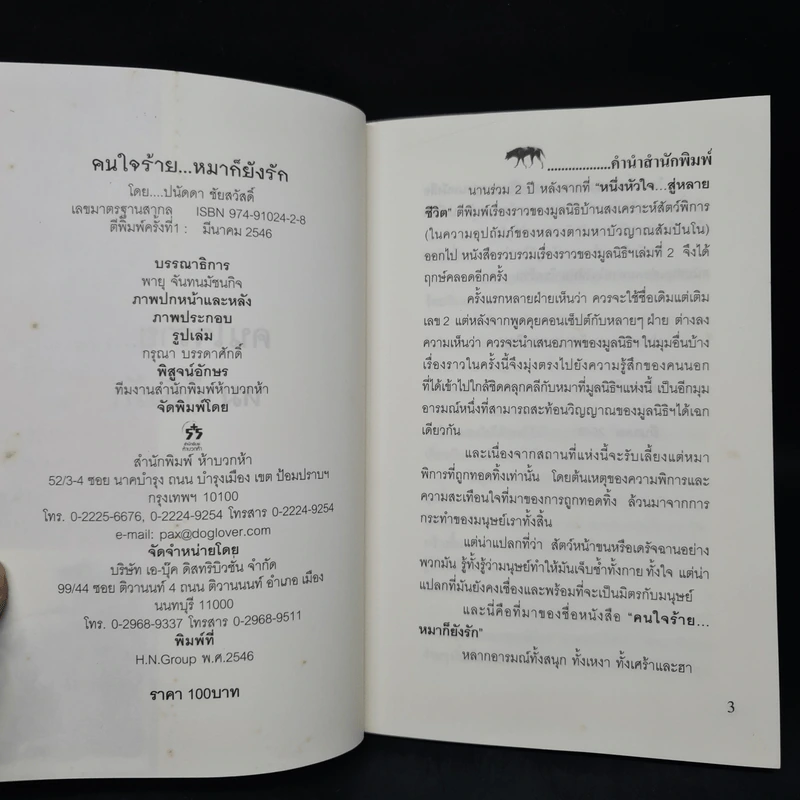 คนใจร้าย...หมาก็ยังรัก
โดย....ปนัดดา ชัยสวัสดิ์
เลขมาตรฐานสากล ISBN 974-91024-2-8
ตีพิมพ์ครั้งที่1 : มีนาคม 2546
บรรณาธิการ
พายุ จันทนมัชนกิจ
ภาพปกหน้าและหลัง
ภาพประกอบ
รูปเล่ม
กรุณา บรรดาศักดิ์
พิสูจน์อักษร
ทีมงานสำนักพิมพ์ห้าบวกห้า
จัดพิมพ์โดย
5+5
สำนักพิมพ์ ห้าบวกห้า
52/3-4 ซอย นาคบำรุง ถนน บำรุงเมือง เขต ป้อมปราบฯ
กรุงเทพฯ 10100
โทร. 0-2225-6676, 0-2224-9254 โทรสาร 0-2224-9254
e-mail: pax@doglover.com
จัดจำหน่ายโดย
บริษัท เอ-บุ๊ค ดิสทริบิวชั่น จำกัด
99/44 ซอย ติวานนท์ 4 ถนน ติวานนนท์ อำเภอ เมือง
นนทบุรี 11000
โทร. 0-2968-9337 โทรสาร 0-2968-9511
พิมพ์ที่
H.N.Group พ.ศ.2546
ราคา 100บาท
..................คำนำสำนักพิมพ์
นานร่วม 2 ปี หลังจากที่ "หนึ่งหัวใจ...สู่หลาย
ชีวิต" ตีพิมพ์เรื่องราวของมูลนิธิบ้านสงเคราะห์สัตว์พิการ
(ในความอุปถัมภ์ของหลวงตามหาบัวญาณสัมปันโน)
ออกไป หนังสือรวบรวมเรื่องราวของมูลนิธิฯเล่มที่ 2 จึงได้
ฤกษ์คลอดอีกครั้ง
ครั้งแรกหลายฝ่ายเห็นว่า ควรจะใช้ชื่อเดิมแต่เติม
เลข 2 แต่หลังจากพูดคุยคอนเซ็ปต์กับหลายๆ ฝ่าย ต่างลง
ความเห็นว่า ควรจะนำเสนอภาพของมูลนิธิฯ ในมุมอื่นบ้าง
เรื่องราวในครั้งนี้จึงมุ่งตรงไปยังความรู้สึกของคนนอก
ที่ได้เข้าไปใกล้ชิดคลุกคลีกับหมาที่มูลนิธิฯแห่งนี้ เป็นอีกมุม
อารมณ์หนึ่งที่สามารถสะท้อนวิญญาณของมูลนิธิฯได้เฉก
เดียวกัน
และเนื่องจากสถานที่แห่งนี้จะรับเลี้ยงแต่หมา
พิการที่ถูกทอดทิ้งเท่านั้น โดยต้นเหตุของความพิการและ
ความสะเทือนใจที่มาของการถูกทอดทิ้ง ล้วนมาจากการ
กระทำของมนุษย์เราทั้งสิ้น
แต่น่าแปลกที่ว่า สัตว์หน้าขนหรือเดรัจฉานอย่าง
พวกมัน รู้ทั้งรู้ว่ามนุษย์ทำให้มันเจ็บช้ำทั้งกาย ทั้งใจ แต่น่า
แปลกที่มันยังคงเชื่องและพร้อมที่จะเป็นมิตรกับมนุษย์
และนี่คือที่มาของชื่อหนังสือ "คนใจร้าย...
หมาก็ยังรัก"
หลากอารมณ์ทั้งสนุก ทั้งเหงา ทั้งเศร้าและฮา
3